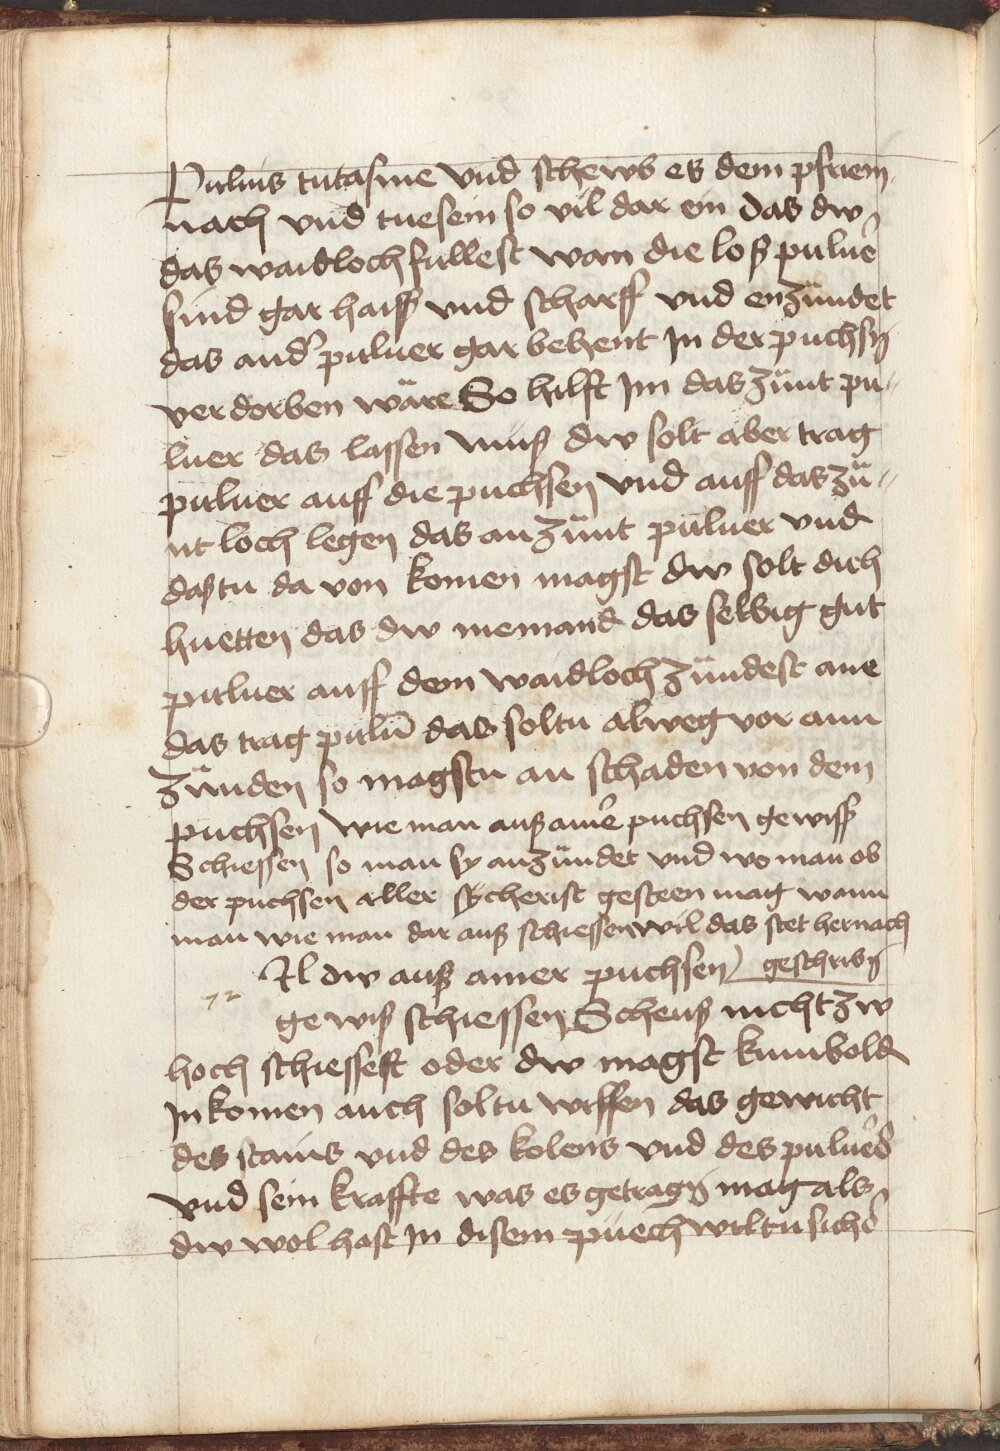 Puluis tutasme vnd schewb es dem pfriem
nach vnd tuesein so vil dar ein das dw
das waidloch fullest wan die loß puluer
sind gar haiß vnd scharff vnd enzündet
das and' puluer gar behent In der puchsñ
ver dorben wäre So hilft Im das zünt pu
luer das lassen muß dw solt aber trag
puluer auff die puchsen vnd auff das zü
nt loch legen das anzünt puluer vnd
dastu da von komen magst dw solt dich
huetten das dw niemand das selbig gut
puluer auff dem waidloch zündest ane
das trag pulũ das soltu alweg vor ann
zünden so magstu an schaden von dem
puchsen wie man auß ainẽ puchsen gewiß
Schiessen so man sy anzündet vnd wo man ob
der puchsen aller sicherist gesteen mag wann
man wie man dar auß schiessen wil das stet hernach
Il dw auß ainer puchsen geschribñ
72
gewiß schiessen Scheuß nicht zw
hoch schiessest oder dw magst kumbold
In komen auch soltu wissen das gewicht
des stains vnd des kolens vnd des puluers
vnd sein kraffte was es getragñ mag als
dw wol hast In disem puech wiltu sich'